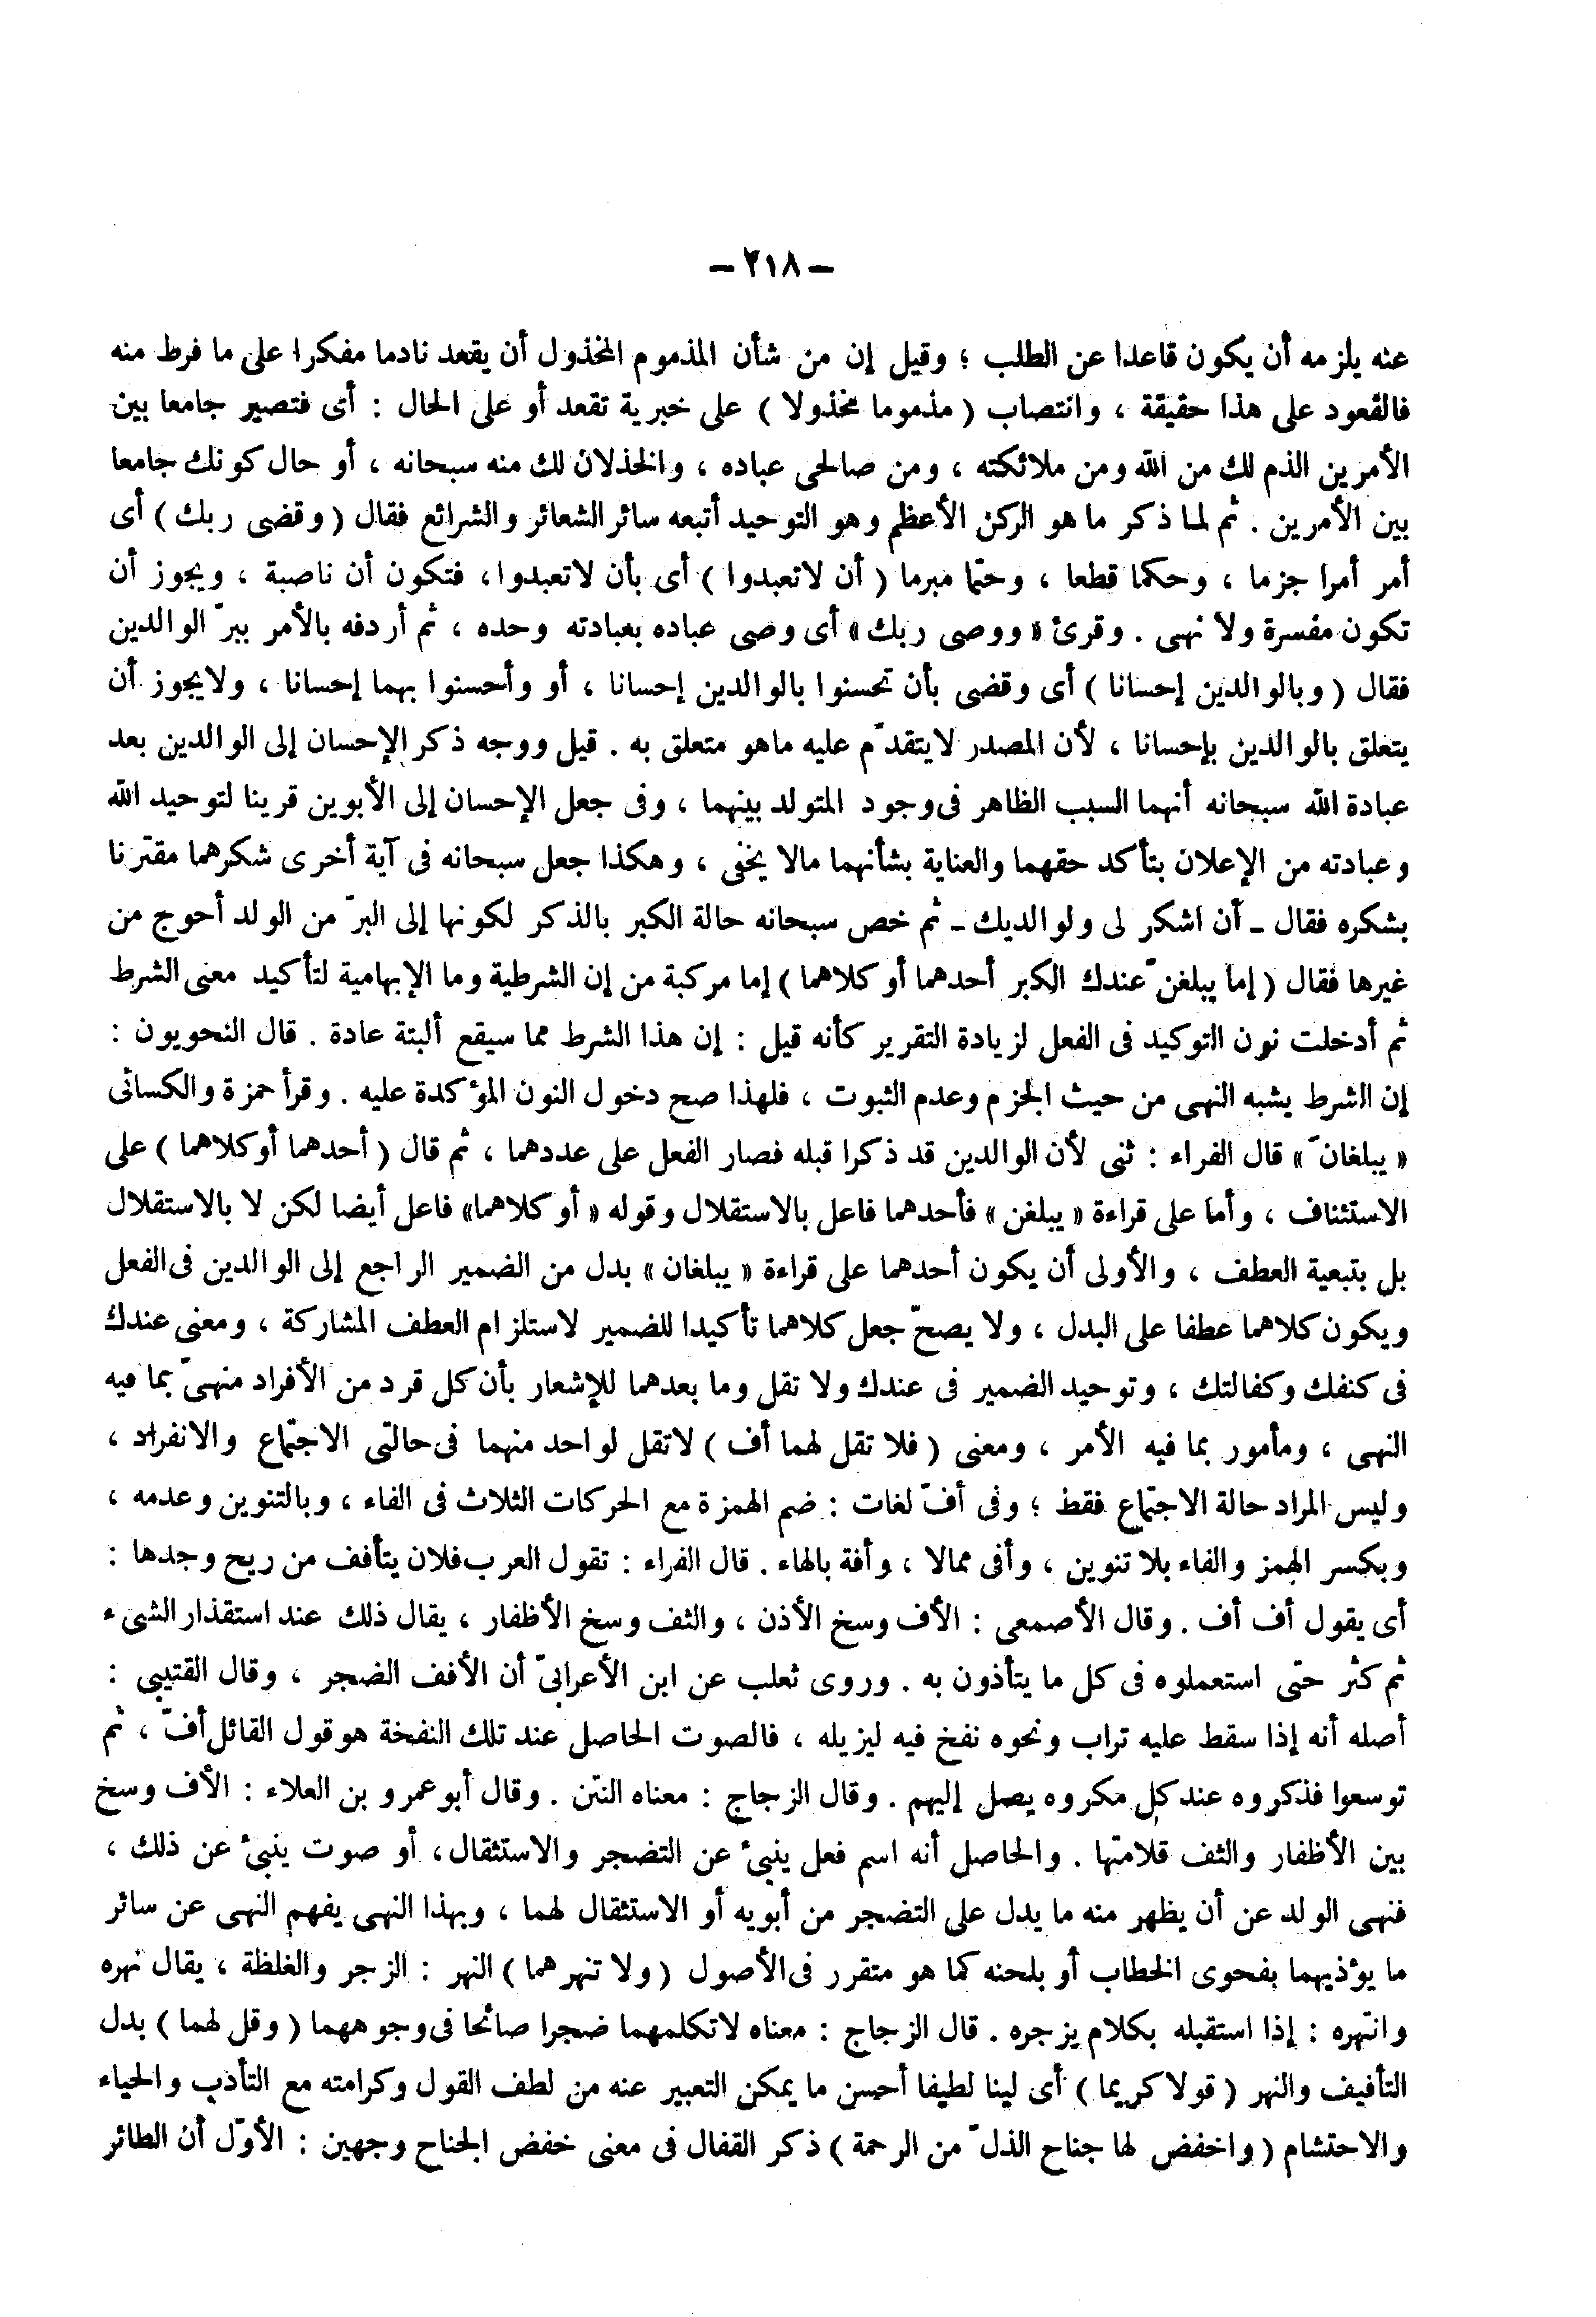 – ٢١٨ –
عنه يلزمه أن يكون قاعدا عن الطلب ؛ وقيل إن من شأن المذموم المخذول أن يقعد نادما مفكرا على ما فرط منه
فالقعود على هذا حقيقة ، وانتصاب ( مذموما مخذولا ) على خبرية تقعد أو على الحال : أى فتصير جامعا بين
الأمرين الذم لك من الله ومن ملائكته ، ومن صالحى عباده ، والخذلان لك منه سبحانه ، أو حال كونك جامعا
بين الأمرين . ثم لما ذكر ما هو الركن الأعظم وهو التوحيد أتبعه سائر الشعائر والشرائع فقال ( وقضى ربك ) أى
أمر أمرا جزما ، وحكما قطعا ، وحتما مبرما ( أن لاتعبدوا ) أى بأن لاتعبدوا ، فتكون أن ناصبة ، ويجوز أن
تكون مفسرة ولا نهى . وقرئ « ووصى ربك » أى وصى عباده بعبادته وحده ، ثم أردفه بالأمر ببرّ الوالدين
فقال ( وبالوالدين إحسانا ) أى وقضى بأن تحسنوا بالوالدين إحسانا ، أو وأحسنوا بهما إحسانا ، ولايجوز أن
يتعلق بالوالدين بإحسانا ، لأن المصدر لايتقدّم عليه ماهو متعلق به . قيل ووجه ذكر الإحسان إلى الوالدين بعد
عبادة الله سبحانه أنهما السبب الظاهر فى وجود المتولد بينهما ، وفى جعل الإحسان إلى الأبوين قرينا لتوحيد الله
وعبادته من الإعلان بتأكد حقهما والعناية بشأنهما مالا يخفى ، وهكذا جعل سبحانه فى آية أخرى شكرهما مقترنا
بشكره فقال ـ أن اشكر لى ولوالديك ـ ثم خص سبحانه حالة الكبر بالذكر لكونها إلى البرّ من الولد أحوج من
غيرها فقال ( إما يبلغنّ عندك الكبر أحدهما أو كلاهما ) إما مركبة من إن الشرطية وما الإبهامية لتأكيد معنى الشرط
ثم أدخلت نون التوكيد فى الفعل لزيادة التقرير كأنه قيل : إن هذا الشرط مما سيقع ألبتة عادة . قال النحويون :
إن الشرط يشبه النهى من حيث الجزم وعدم الثبوت ، فلهذا صح دخول النون المؤكدة عليه . وقرأ حمزة والكسائى
« يبلغانّ » قال الفراء : ثنى لأن الوالدين قد ذكرا قبله فصار الفعل على عددهما ، ثم قال ( أحدهما أو كلاهما ) على
الاستئناف ، وأما على قراءة « يبلغن » فأحدهما فاعل بالاستقلال وقوله « أو كلاهما » فاعل أيضا لكن لا بالاستقلال
بل بتبعية العطف ، والأولى أن يكون أحدهما على قراءة « يبلغان » بدل من الضمير الراجع إلى الوالدين فى الفعل
ويكون كلاهما عطفا على البدل ، ولا يصحّ جعل كلاهما تأكيدا للضمير لاستلزام العطف المشاركة ، ومعنى عندك
فى كنفك وكفالتك ، وتوحيد الضمير فى عندك ولا تقل وما بعدهما للإشعار بأن كل قرد من الأفراد منهىّ بما فيه
النهى ، ومأمور بما فيه الأمر ، ومعنى ( فلا تقل لهما أف ) لاتقل لواحد منهما فى حالتى الاجتماع والانفراد ،
وليس المراد حالة الاجتماع فقط ؛ وفى أفّ لغات : ضم الهمزة مع الحركات الثلاث فى الفاء ، وبالتنوين وعدمه ،
وبكسر الهمز والفاء بلا تنوين ، وأفى ممالا ، وأفة بالهاء . قال الفراء : تقول العرب فلان يتأفف من ريح وجدها :
أى يقول أف أف . وقال الأصمعى : الأف وسخ الأذن ، والثف وسخ الأظفار ، يقال ذلك عند استقذار الشىء
ثم كثر حتى استعملوه فى كل ما يتأذون به . وروى ثعلب عن ابن الأعرابىّ أن الأفف الضجر ، وقال القتيبى :
أصله أنه إذا سقط عليه تراب ونحوه نفخ فيه ليزيله ، فالصوت الحاصل عند تلك النفخة هو قول القائل أفّ ، ثم
توسعوا فذكروه عند كل مكروه يصل إليهم . وقال الزجاج : معناه النتن . وقال أبو عمرو بن العلاء : الأف وسخ
بين الأظفار والثف قلامتها . والحاصل أنه اسم فعل ينبئ عن التضجر والاستثقال ، أو صوت ينبئ عن ذلك ،
فنهى الولد عن أن يظهر منه ما يدل على التضجر من أبويه أو الاستثقال لهما ، وبهذا النهى يفهم النهى عن سائر
ما يؤذيهما بفحوى الخطاب أو بلحنه كما هو متقرر فى الأصول ( ولا تنهرهما ) النهر : الزجر والغلظة ، يقال نهره
وانتهره : إذا استقبله بكلام يزجره . قال الزجاج : معناه لاتكلمهما ضجرا صائحا فى وجوههما ( وقل لهما ) بدل
التأفيف والنهر ( قولا كريما ) أى لينا لطيفا أحسن ما يمكن التعبير عنه من لطف القول وكرامته مع التأدب والحياء
والاحتشام ( واخفض لها جناح الذلّ من الرحمة ) ذكر القفال فى معنى خفض الجناح وجهين : الأوّل أن الطائر